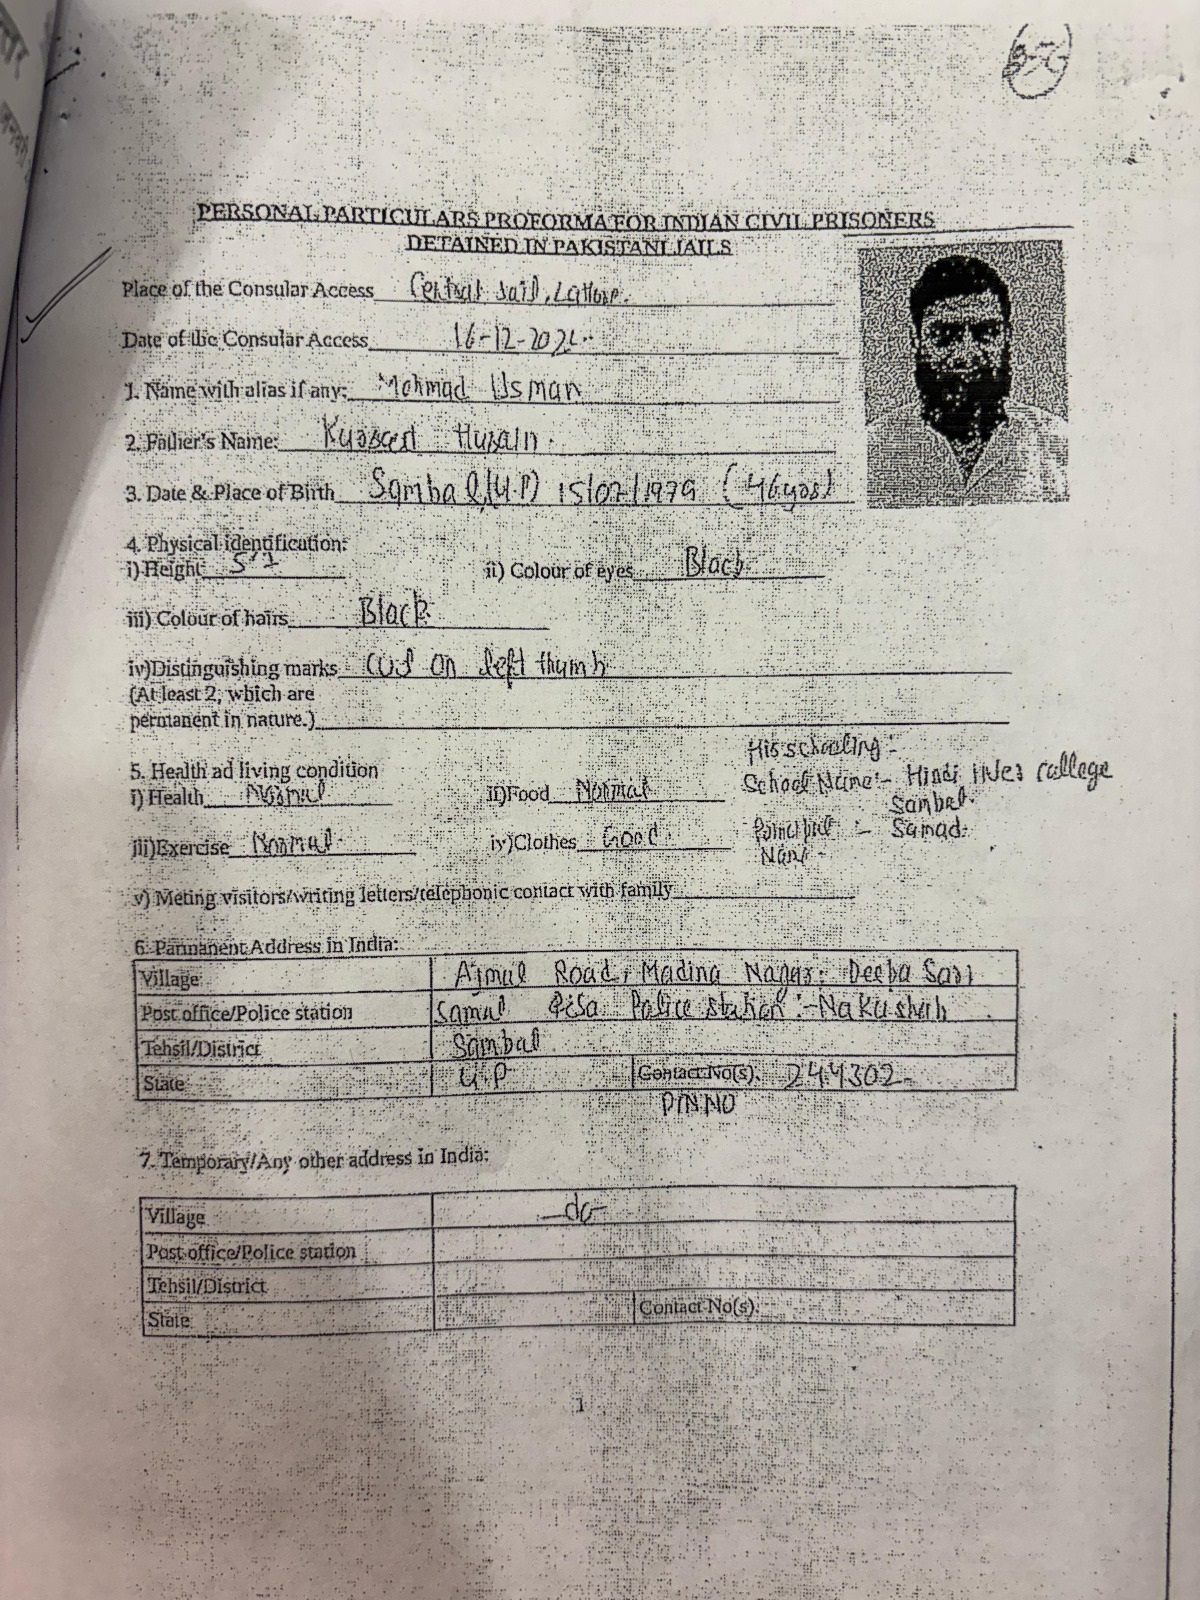 PERSONAL PARTICULARS PROFORMA FOR INDIAN CIVIL PRISONERS
DETAINED IN PAKISTANI JAILS
Place of the Consular Access Central Jail, Lahore.
Date of the Consular Access 16-12-202
1. Name with alias if any: Mohmad Usman
2. Father's Name: Husain.
3. Date & Place of Birth Sambal (U.P) 15/02/1979 (46 yrs)
4. Physical identification:
i) Height 5'7 ii) Colour of eyes Black
iii) Colour of hairs Black
iv)Distinguishing marks cut on left thumb
(At least 2, which are
permanent in nature.)
His schooling:-
5. Health ad living condition
School Name:- Hindi college
i) Health Normal ii)Food Normal
Sambal.
iii)Exercise Normal. iv)Clothes Good.
Principal :- Samad.
Name -
v) Meting visitors/writing letters/telephonic contact with family
6. Parmanent Address in India:
Village Ajmal Road, Madina Nagar, Deepa Sari
Post office/Police station Police station:- Nakushah
Tehsil/District Sambal
State U.P Contact No(s). 244302-
PIN NO
7. Temporary/Any other address in India:
Village -do-
Post office/Police station
Tehsil/District
State Contact No(s).
1